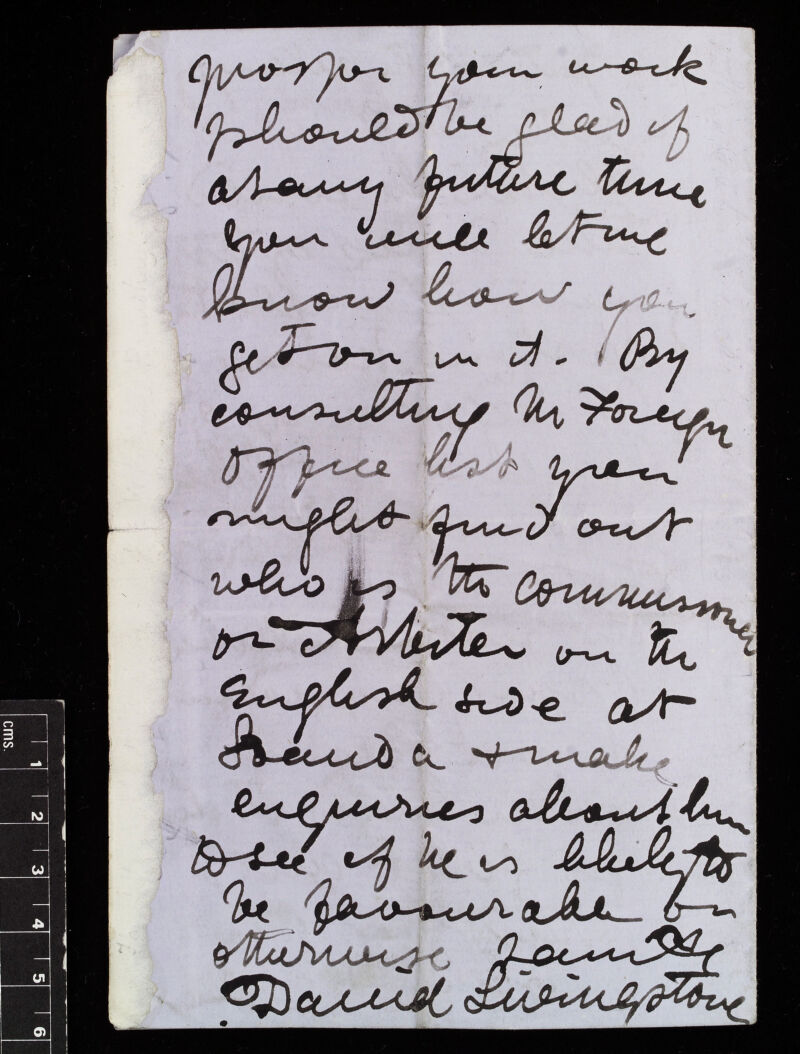 prosper your work
I should be glad if
at any future time
you will let me
know how you
get on in it. By
consulting the Foreign
Office list you
might find out
who is the commissioner
or Arbiter on the
English side at
Loanda & make
enquiries about him
to see if he is likely to
be favourable or
otherwise I am &c
David Livingstone
cms.
1
2
3
4
5
6